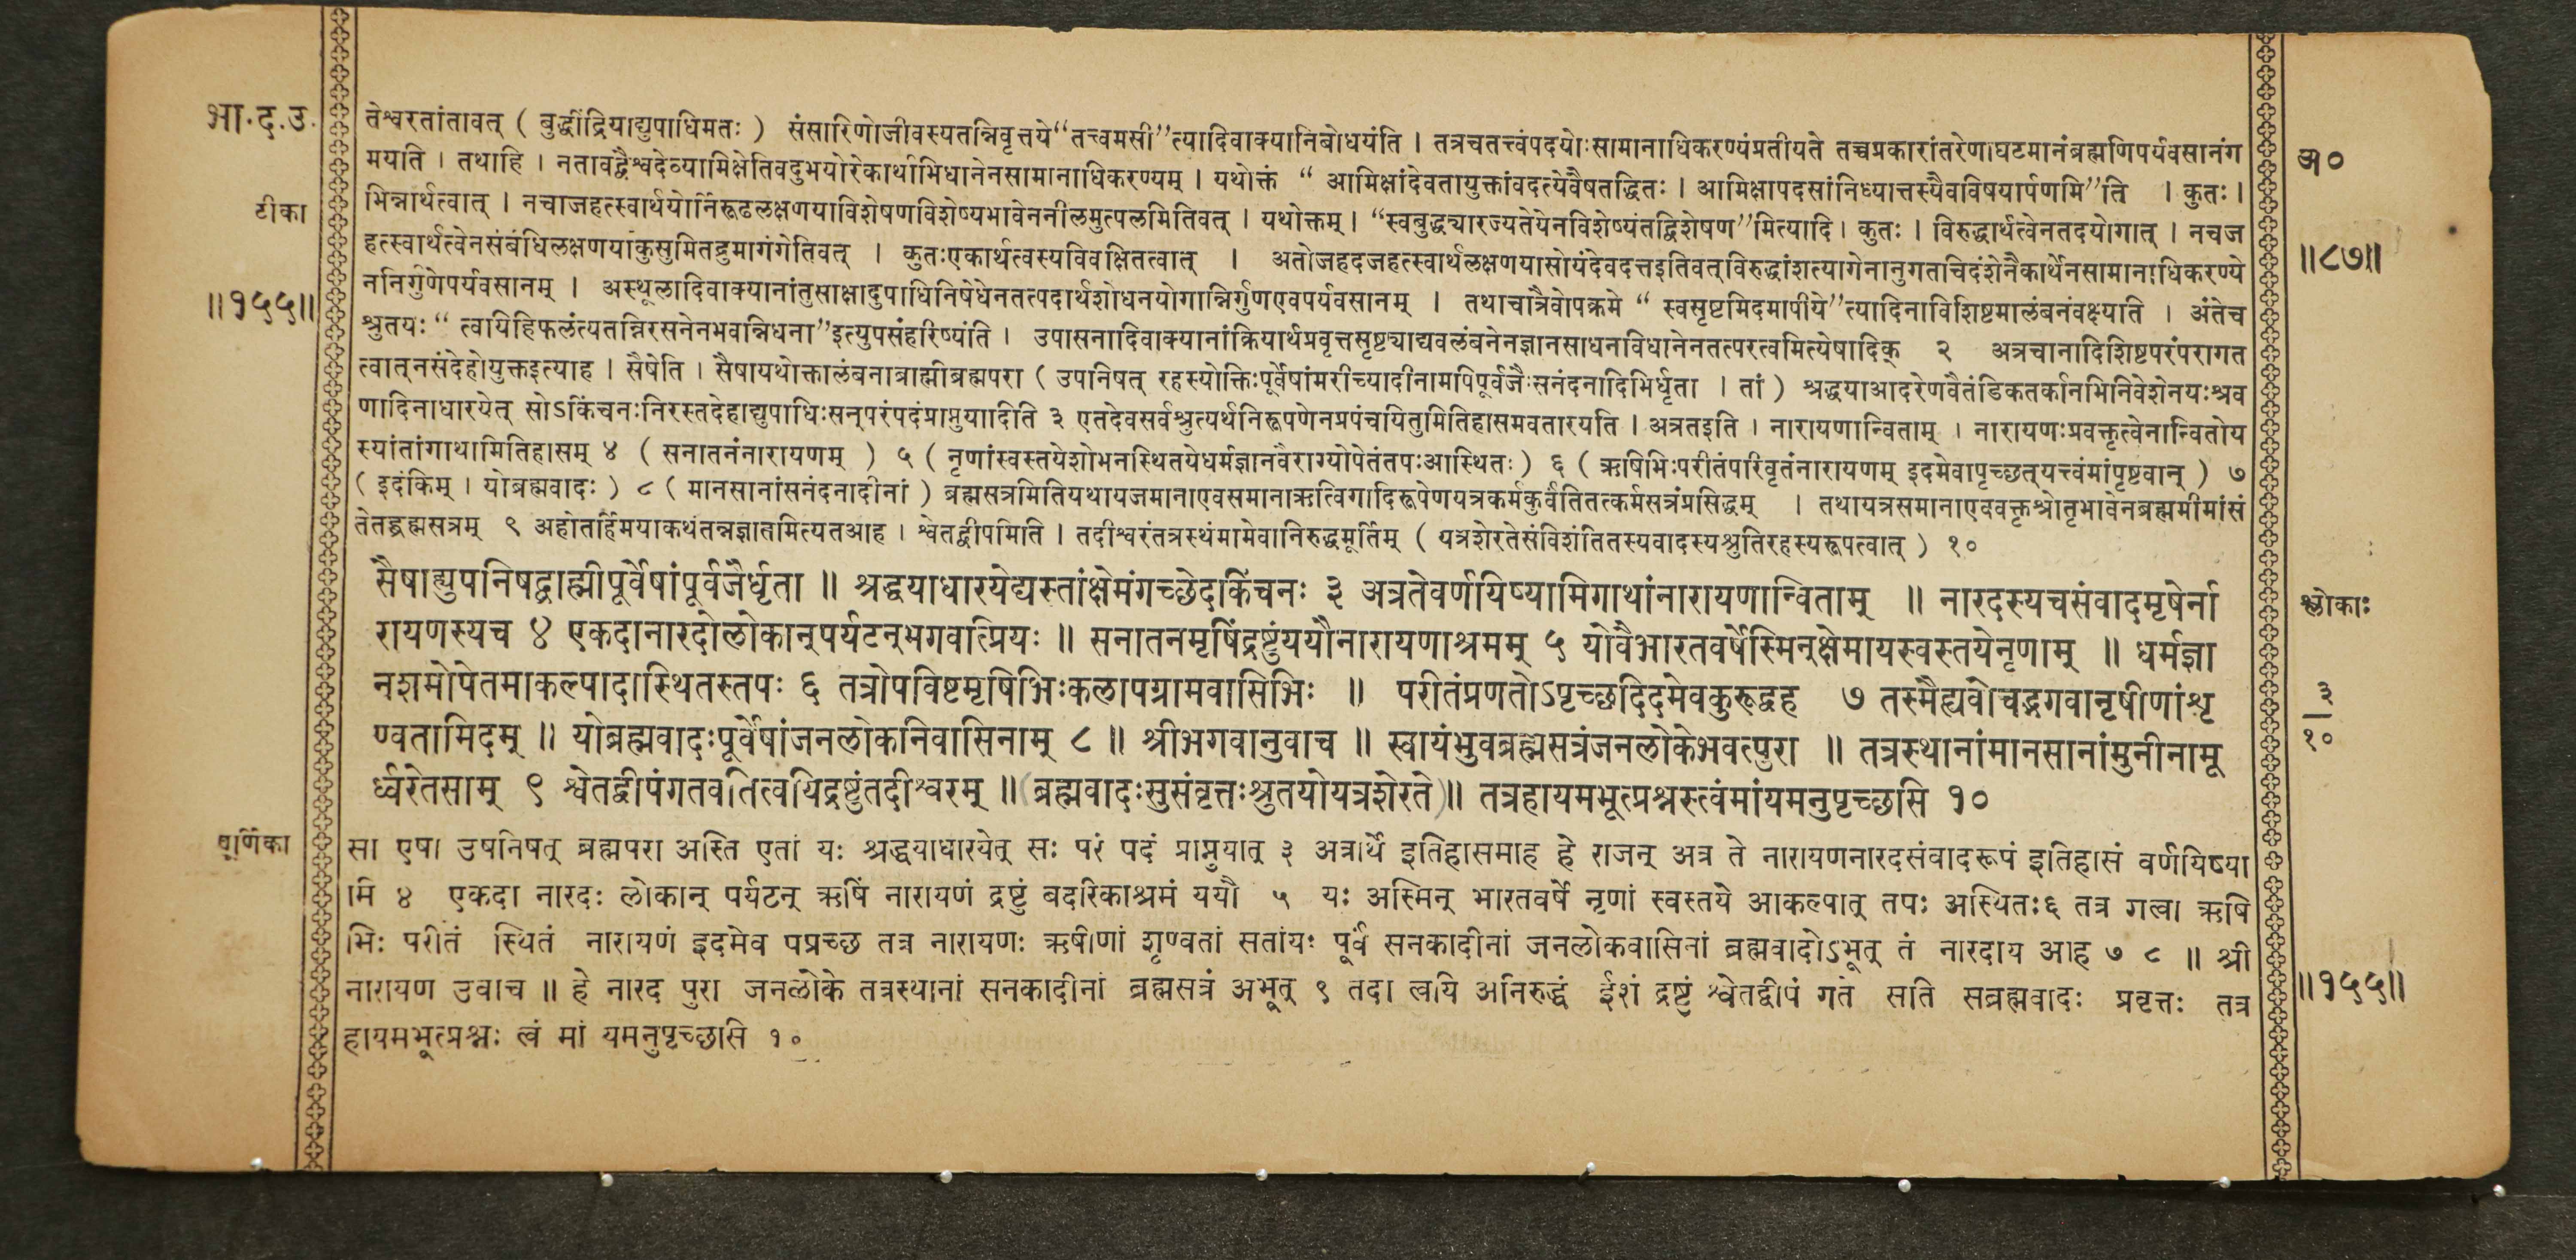 भा.द.उ.
टीका
॥१५५॥
तेश्वरतांतावत् ( बुद्धींद्रियाद्युपाधिमतः ) संसारिणोजीवस्यतन्निवृत्तये“तत्त्वमसी”त्यादिवाक्यानिबोधयंति । तत्रचतत्त्वंपदयोःसामानाधिकरण्यंप्रतीयते तच्चप्रकारांतरेणाघटमानंब्रह्मणिपर्यवसानंग
मयति । तथाहि । नतावद्वैश्वदेव्यामिक्षेतिवदुभयोरेकार्थाभिधानेनसामानाधिकरण्यम् । यथोक्तं “ आमिक्षांदेवतायुक्तांवदत्येवैषतद्धितः । आमिक्षापदसांनिध्यात्तस्यैवविषयार्पणमि”ति । कुतः ।
भिन्नार्थत्वात् । नचाजहत्स्वार्थयोर्निरूढलक्षणयाविशेषणविशेष्यभावेननीलमुत्पलमितिवत् । यथोक्तम् । “स्वबुद्ध्यारज्यतेयेनविशेष्यंतद्विशेषण”मित्यादि । कुतः । विरुद्धार्थत्वेनतदयोगात् । नचज
हत्स्वार्थत्वेनसंबंधिलक्षणयाकुसुमितद्रुमागंगेतिवत् । कुतःएकार्थत्वस्यविवक्षितत्वात् । अतोजहदजहत्स्वार्थलक्षणयासोयंदेवदत्तइतिवत्विरुद्धांशत्यागेनानुगतचिदंशेनैकार्थेनसामानाधिकरण्ये
ननिर्गुणेपर्यवसानम् । अस्थूलादिवाक्यानांतुसाक्षादुपाधिनिषेधेनतत्पदार्थशोधनयोगान्निर्गुणएवपर्यवसानम् । तथाचात्रैवोपक्रमे “ स्वसृष्टमिदमापीये”त्यादिनाविशिष्टमालंबनंवक्ष्यति । अंतेच
श्रुतयः“ त्वयिहिफलंत्यतन्निरसनेनभवन्निधना”इत्युपसंहरिष्यंति । उपासनादिवाक्यानांक्रियार्थप्रवृत्तसृष्ट्याद्यवलंबनेनज्ञानसाधनविधानेनतत्परत्वमित्येषादिक् २ अत्रचानादिशिष्टपरंपरागत
त्वात्नसंदेहोयुक्तइत्याह । सैषेति । सैषायथोक्तालंबनाब्राह्मीब्रह्मपरा ( उपनिषत् रहस्योक्तिःपूर्वेषांमरीच्यादीनामपिपूर्वजैःसनंदनादिभिर्धृता । तां ) श्रद्धयाआदरेणवैतंडिकतर्कानभिनिवेशेनयःश्रव
णादिनाधारयेत् सोऽकिंचनःनिरस्तदेहाद्युपाधिःसन्परंपदंप्राप्नुयादिति ३ एतदेवसर्वश्रुत्यर्थनिरूपणेनप्रपंचयितुमितिहासमवतारयति । अत्रतइति । नारायणान्विताम् । नारायणःप्रवक्तृत्वेनान्वितोय
स्यांतांगाथामितिहासम् ४ ( सनातनंनारायणम् ) ५ ( नृणांस्वस्तयेशोभनस्थितयेधर्मज्ञानवैराग्योपेतंतपःआस्थितः ) ६ ( ऋषिभिःपरीतंपरिवृतंनारायणम् इदमेवापृच्छत्यत्त्वंमांपृष्टवान् ) ७
( इदंकिम् । योब्रह्मवादः ) ८ ( मानसानांसनंदनादीनां ) ब्रह्मसत्रमितियथायजमानाएवसमानाऋत्विगादिरूपेणयत्रकर्मकुर्वंतितत्कर्मसत्रंप्रसिद्धम् । तथायत्रसमानाएववक्तृश्रोतृभावेनब्रह्ममीमांसं
तेतद्ब्रह्मसत्रम् ९ अहोतर्हिमयाकथंतन्नज्ञातमित्यतआह । श्वेतद्वीपमिति । तदीश्वरंतत्रस्थंमामेवानिरुद्धमूर्तिम् ( यत्रशेरतेसंविशंतितस्यवादस्यश्रुतिरहस्यरूपत्वात् ) १०
सैषाह्युपनिषद्ब्राह्मीपूर्वेषांपूर्वजैर्धृता ॥ श्रद्धयाधारयेद्यस्तांक्षेमंगच्छेदकिंचनः ३ अत्रतेवर्णयिष्यामिगाथांनारायणान्विताम् ॥ नारदस्यचसंवादमृषेर्ना
रायणस्यच ४ एकदानारदोलोकान्पर्यटन्भगवत्प्रियः ॥ सनातनमृषिंद्रष्टुंययौनारायणाश्रमम् ५ योवैभारतवर्षेस्मिन्क्षेमायस्वस्तयेनृणाम् ॥ धर्मज्ञा
नशमोपेतमाकल्पादास्थितस्तपः ६ तत्रोपविष्टमृषिभिःकलापग्रामवासिभिः ॥ परीतंप्रणतोऽपृच्छदिदमेवकुरूद्वह ७ तस्मैह्यवोचद्भगवानृषीणांशृ
ण्वतामिदम् ॥ योब्रह्मवादःपूर्वेषांजनलोकनिवासिनाम् ८ ॥ श्रीभगवानुवाच ॥ स्वायंभुवब्रह्मसत्रंजनलोकेभवत्पुरा ॥ तत्रस्थानांमानसानांमुनीनामू
र्ध्वरेतसाम् ९ श्वेतद्वीपंगतवतित्वयिद्रष्टुंतदीश्वरम् ॥ (ब्रह्मवादःसुसंवृत्तःश्रुतयोयत्रशेरते) ॥ तत्रहायमभूत्प्रश्नस्त्वंमांयमनुपृच्छसि १०
चूर्णिका
सा एषा उपनिषत् ब्रह्मपरा अस्ति एतां यः श्रद्धयाधारयेत् सः परं पदं प्राप्नुयात् ३ अत्रार्थे इतिहासमाह हे राजन् अत्र ते नारायणनारदसंवादरूपं इतिहासं वर्णयिष्या
मि ४ एकदा नारदः लोकान् पर्यटन् ऋषिं नारायणं द्रष्टुं बदरिकाश्रमं ययौ ५ यः अस्मिन् भारतवर्षे नृणां स्वस्तये आकल्पात् तपः अस्थितः६ तत्र गत्वा ऋषि
भिः परीतं स्थितं नारायणं इदमेव पप्रच्छ तत्र नारायणः ऋषीणां शृण्वतां सतांयः पूर्वं सनकादीनां जनलोकवासिनां ब्रह्मवादोऽभूत् तं नारदाय आह ७ ८ ॥ श्री
नारायण उवाच ॥ हे नारद पुरा जनलोके तत्रस्थानां सनकादीनां ब्रह्मसत्रं अभूत् ९ तदा त्वयि अनिरुद्धं ईशं द्रष्टुं श्वेतद्वीपं गते सति सब्रह्मवादः प्रवृत्तः तत्र
हायमभूत्प्रश्नः त्वं मां यमनुपृच्छासि १०
अ०
॥८७॥
श्लोकाः
३
१०
॥१५५॥